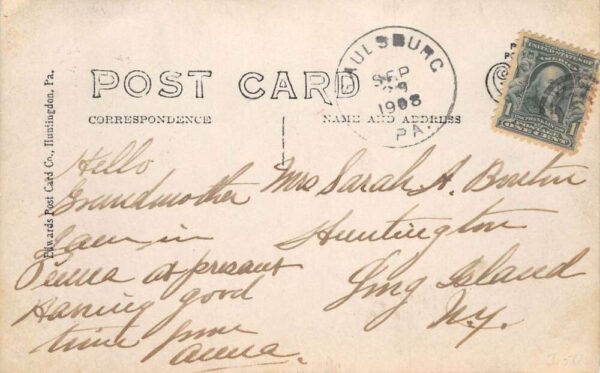 POST CARD
CORRESPONDENCE
NAME AND ADDRESS
AULSBURG
SEP
1908
PA.
UNITED STATES OF AMERICA
1
1
Edwards Post Card Co., Huntingdon, Pa.
Hello
Grandmother
I am in
Penna at present
Having good
time from
Anna.
Mrs Sarah A.
Huntington
Long Island
N.Y.